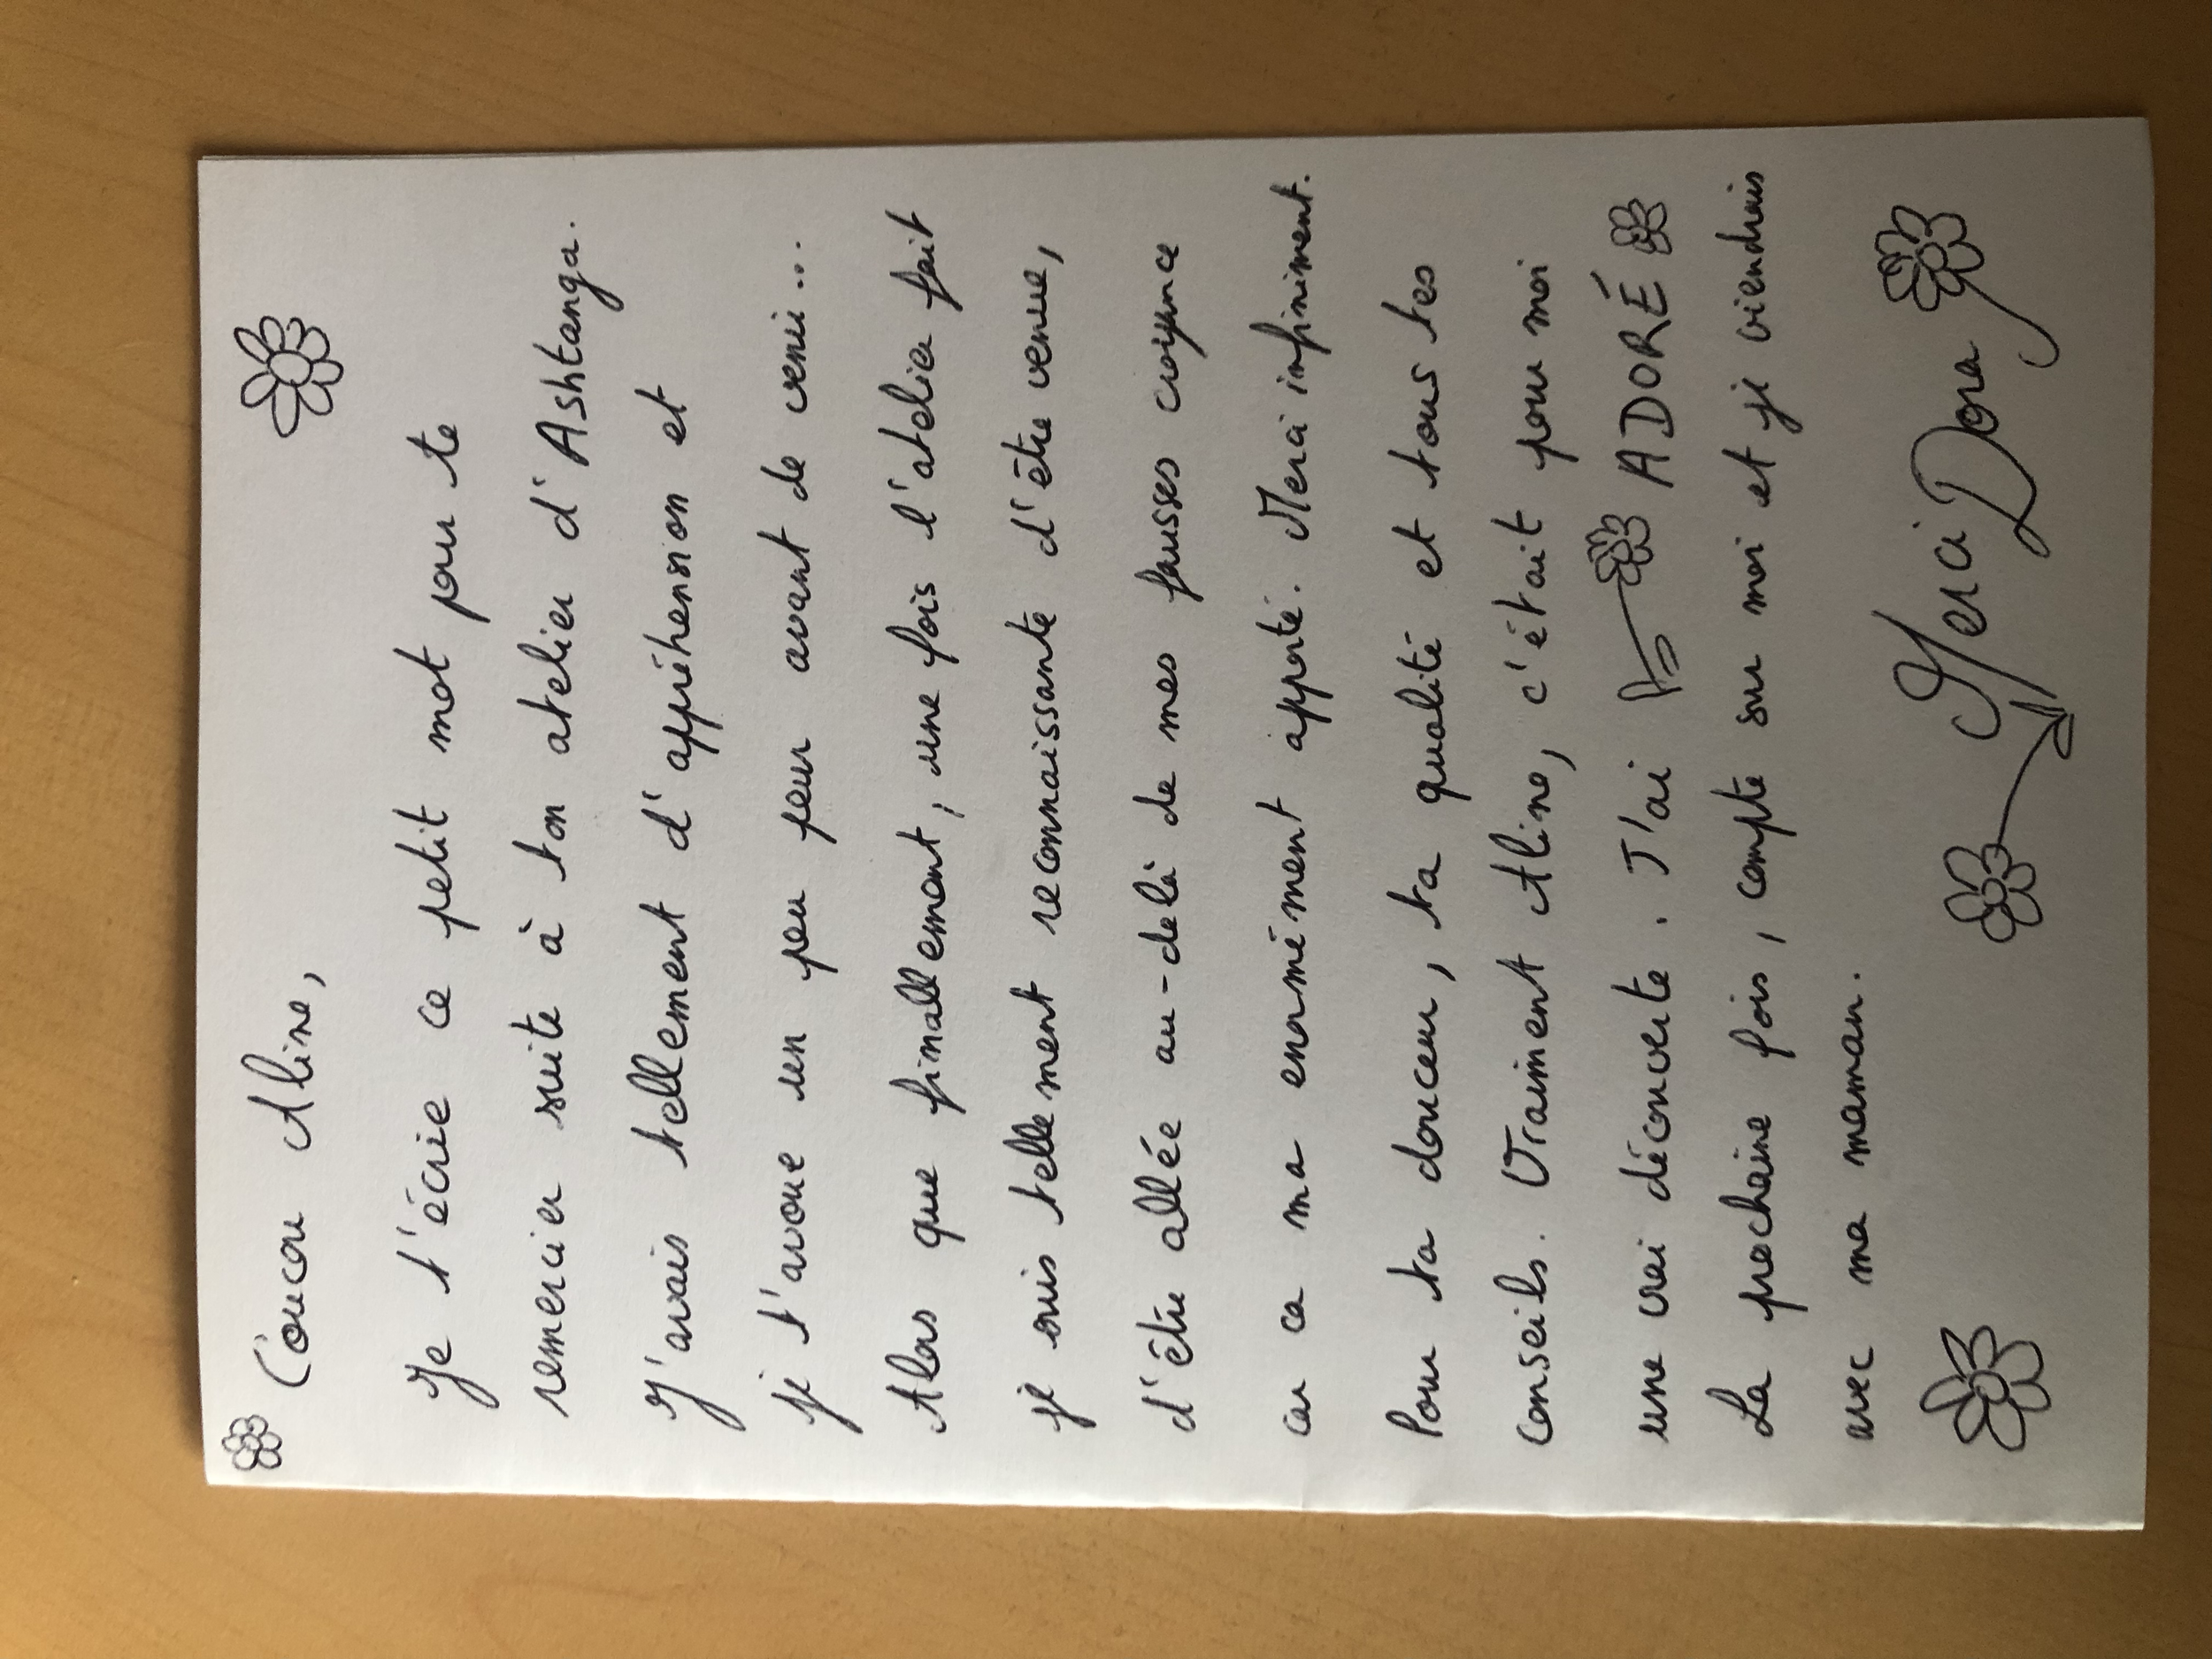 Coucou Aline,
Je t'écrie ce petit mot pour te
remercier suite à ton atelier d'Ashtanga.
J'avais tellement d'appréhension et
je t'avoue un peu peur avant de veni...
Alors que finallement, une fois l'atelier fait
je suis tellement reconnaissante d'être venue,
d'être allée au-delà de mes fausses croyance
car ca ma enormément apporté. Merci infiniment.
Pour ta douceur, ta qualité et tous tes
conseils. Vraiment Aline, c'était pour moi
une vrai découverte. J'ai ADORÉ
La prochaine fois, compte sur moi et je viendrais
avec ma maman.
Merci Dora